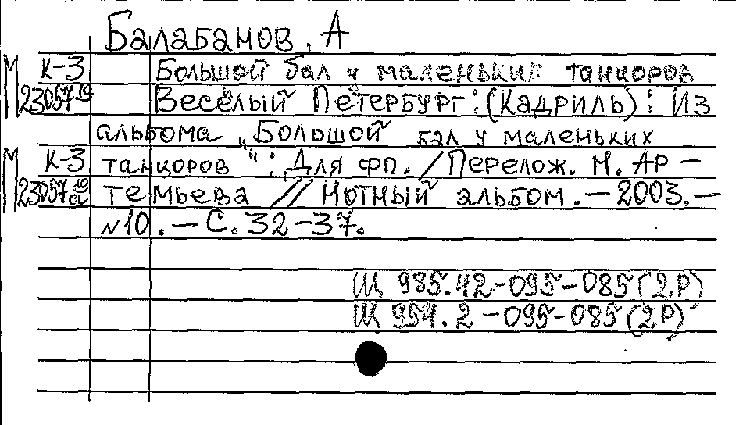 Балабанов, А
К-3 Большой бал у маленьких танцоров
Весёлый Петербург: (Кадриль): Из
альбома „Большой бал у маленьких
К-3 танцоров": Для фп. / Перелож. М. Ар-
темьева // Нотный альбом. - 2003. -
№10. - С. 32-37.
Щ 985.42-095-085(2,Р)
Щ 954.2-095-085(2,Р)